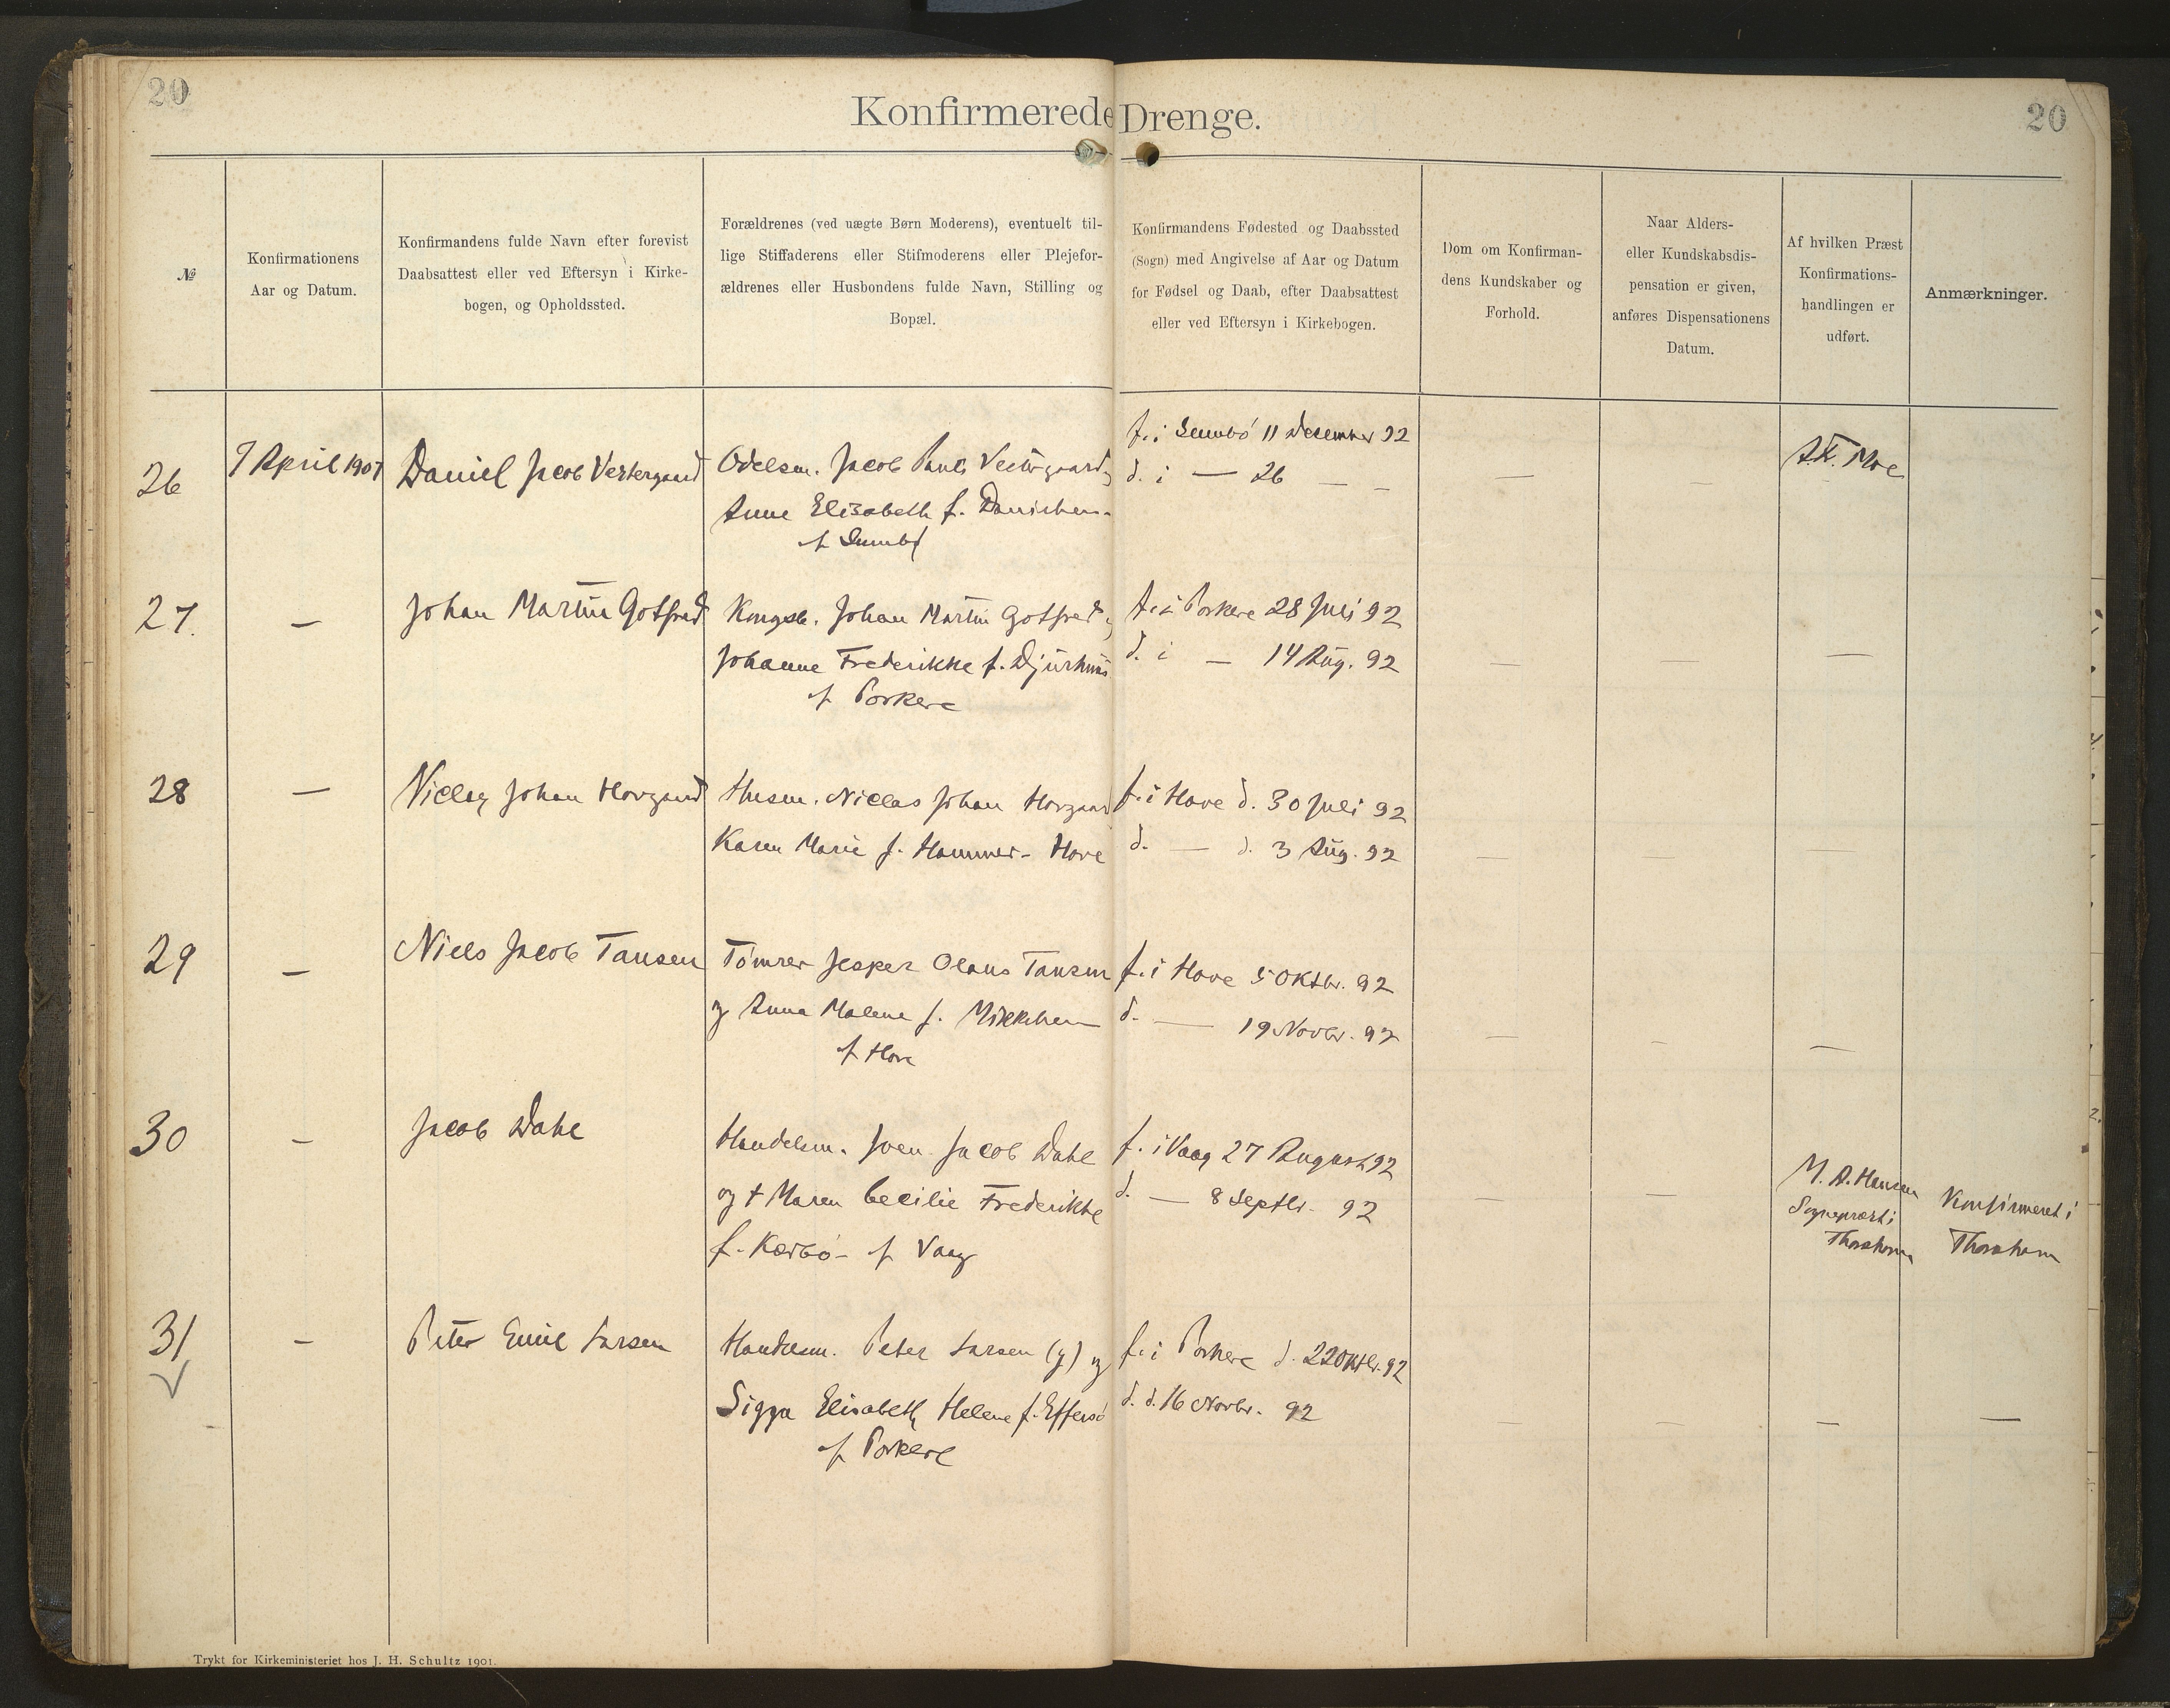 20
Konfirmerede Drenge.
20
№
Konfirmationens
Aar og Datum.
Konfirmandens fulde Navn efter forevist
Daabsattest eller ved Eftersyn i Kirke-
bogen, og Opholdssted.
Forældrenes (ved uægte Børn Moderens), eventuelt til-
lige Stiffaderens eller Stifmoderens eller Plejefor-
ældrenes eller Husbondens fulde Navn, Stilling og
Bopæl.
Konfirmandens Fødested og Daabssted
(Sogn) med Angivelse af Aar og Datum
for Fødsel og Daab, efter Daabsattest
eller ved Eftersyn i Kirkebogen.
Dom om Konfirman-
dens Kundskaber og
Forhold.
Naar Alders-
eller Kundskabsdis-
pensation er given,
anføres Dispensationens
Datum.
Af hvilken Præst
Konfirmations-
handlingen er
udført.
Anmærkninger.
26
7 April 1907
Daniel Jacob Vestergaard
Odelsm. Jacob Pauli Vestergaard
Anne Elisabeth f.
af Sumbø
f. i Sumbø 11 Desember 92
d. i — 26 — —
—
—
A.K. Moe
27.
—
Johan Martin Gotfred
Kongsb. Johan Martin Gotfred og
Johanne Frederikke f. Djurhuus
af Porkere
f. i Porkere 28 Juli 92
d. i — 14 Aug. 92
—
—
28
—
Niclas Johan Hovgaard
Husm. Niclas Johan Hovgaard
Karen Marie f. Hammer - Hove
f. i Hove d. 30 Juli 92
d. — d. 3 Aug. 92
—
—
—
29
—
Niels Jacob Tausen
Tømrer Jesper Olaus Tausen
og Anna Malene f. Mikkelsen
af Hove
f. i Hove 5 Oktbr. 92
d. — 19 Novbr. 92
—
—
—
30
—
Jacob Dahl
Handelsm. Joen Jacob Dahl
og † Maren Cecilie Frederikke
f. Kærbø - af Vaag
f. i Vaag 27 August 92
d. — 8 Septbr. 92
—
—
M. A. Hansen
Sognepræst i
Thorshavn
Konfirmeret i
Thorshavn
31
—
Peter Emil Larsen
Handelsm. Peter Larsen (y) og
Sigga Elisabeth Helene f. Effersø
af Porkere
f. i Porkere d. 22 Oktbr. 92
d. d. 16 Novbr. 92
—
—
—
—
Trykt for Kirkeministeriet hos J. H. Schultz 1901.